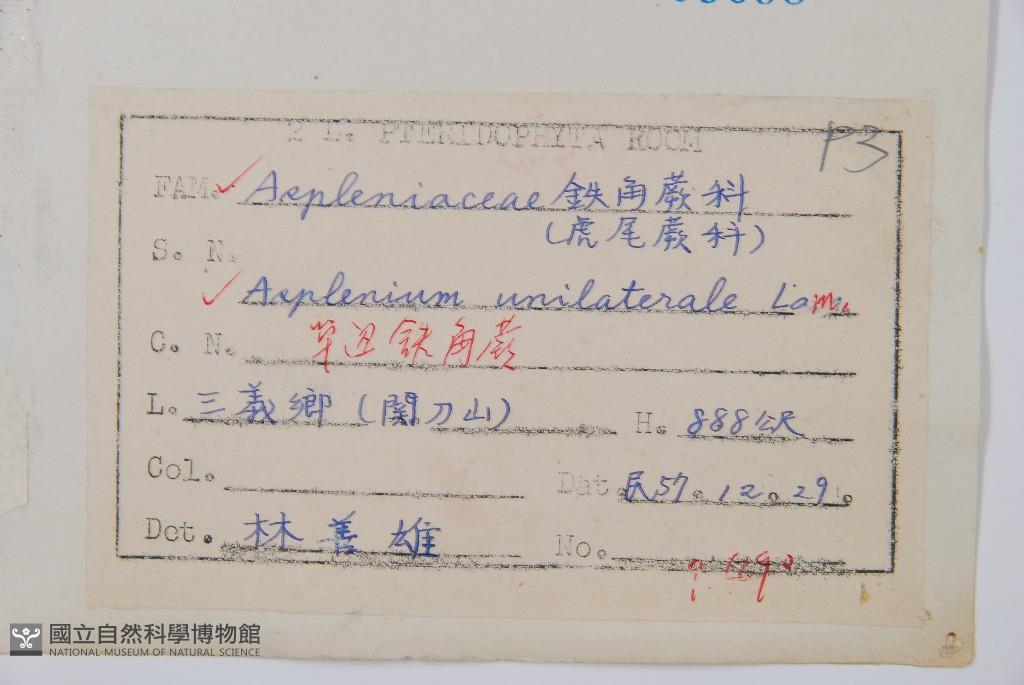 2 L. PTERIDOPHYTA ROOM
P3
FAM. Aspleniaceae 鉄角蕨科
(虎尾蕨科)
S. N.
Asplenium unilaterale Lam.
C. N. 單边鉄角蕨
L. 三義鄉(関刀山) H. 888公尺
Col. Dat. 民57.12.29.
Det. 林善雄 No.
國立自然科學博物館
NATIONAL MUSEUM OF NATURAL SCIENCE